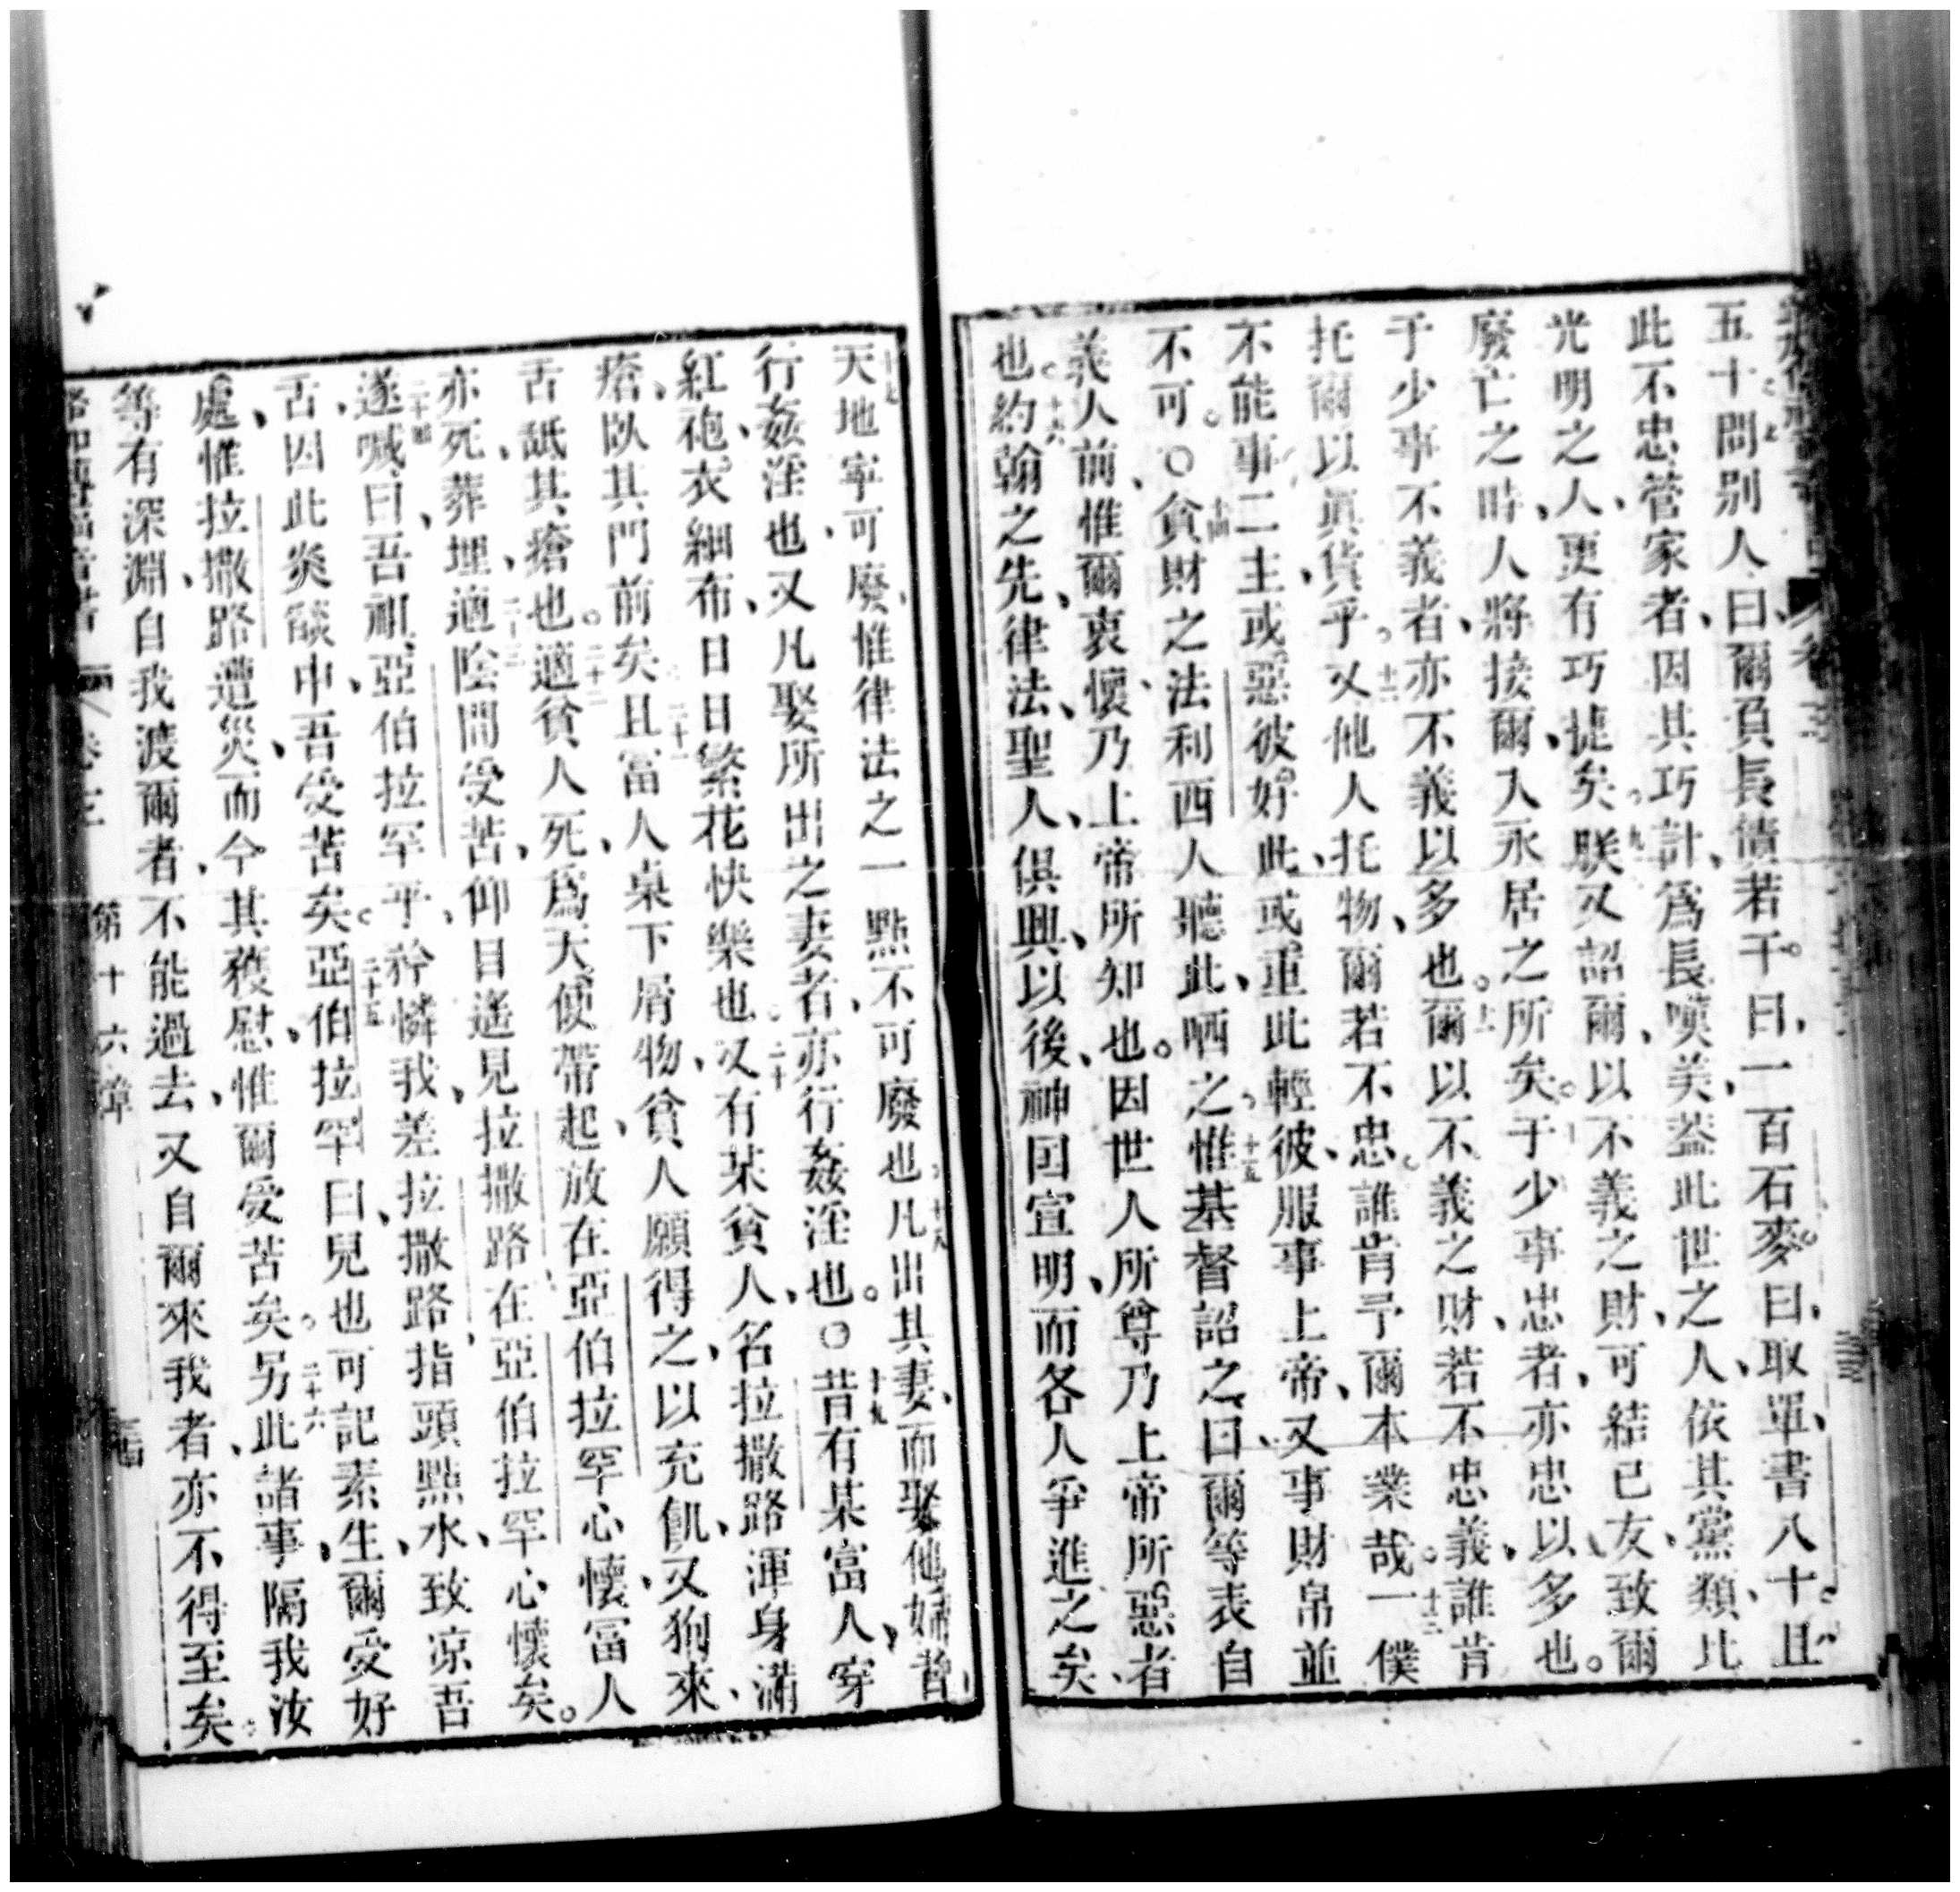 五十七問別人、曰、爾負長債若干。曰、一百石麥。曰、取單、書八十。且
此不忠管家者、因其巧計、爲長嘆美、蓋此世之人、依其黨類、比
光明之人、更有巧捷矣。九朕又詔爾、以不義之財、可結己友、致爾
廢亡之時、人將接爾、入永居之所矣。十于少事忠者、亦忠以多也。
于少事不義者、亦不義以多也。十一爾以不義之財、若不忠義、誰肯
托爾以眞貨乎。十二又他人托物、爾若不忠。誰肯予爾本業哉。十三一僕
不能事二主、或惡彼好此、或重此輕彼、服事上帝、又事財帛並
不可。○十四貪財之法利西人聽此、哂之。十五惟基督詔之、曰、爾等表自
義人前、惟爾衷懷、乃上帝所知也。因世人所尊、乃上帝所惡者
也。十六約翰之先、律法、聖人、俱興、以後、神囯宣明、而各人爭進之矣、
十七天地寧可廢、惟律法之一點不可廢也。十八凡出其妻、而娶他婦者、
行姦淫也、又凡娶所出之妻者、亦行姦淫也。○十九昔有某富人、穿
紅袍、衣細布、日日繁花快樂也。二十又有某貧人、名拉撒路、渾身滿
瘡、臥其門前矣。二十一且富人桌下屑物、貧人願得之、以充飢、又狗來、
舌舐其瘡也。二十二適貧人死、爲天使帶起、放在亞伯拉罕心懷、富人
亦死、葬埋、二十三適陰間受苦、仰目遙見拉撒路在亞伯拉罕心懷矣。
二十四遂喊、曰、吾祖、亞伯拉罕乎、矜憐我、差拉撒路、指頭點水、致凉吾
舌、因此炎燄中、吾受苦矣。二十五亞伯拉罕曰、兒也、可記素生、爾受好
處、惟拉撒路遭災、而今其獲慰、惟爾受苦矣。二十六另此諸事、隔我汝
等有深淵、自我渡爾者、不能過去、又自爾來我者、亦不得至矣。
路加傳福音書 卷三 第十六章